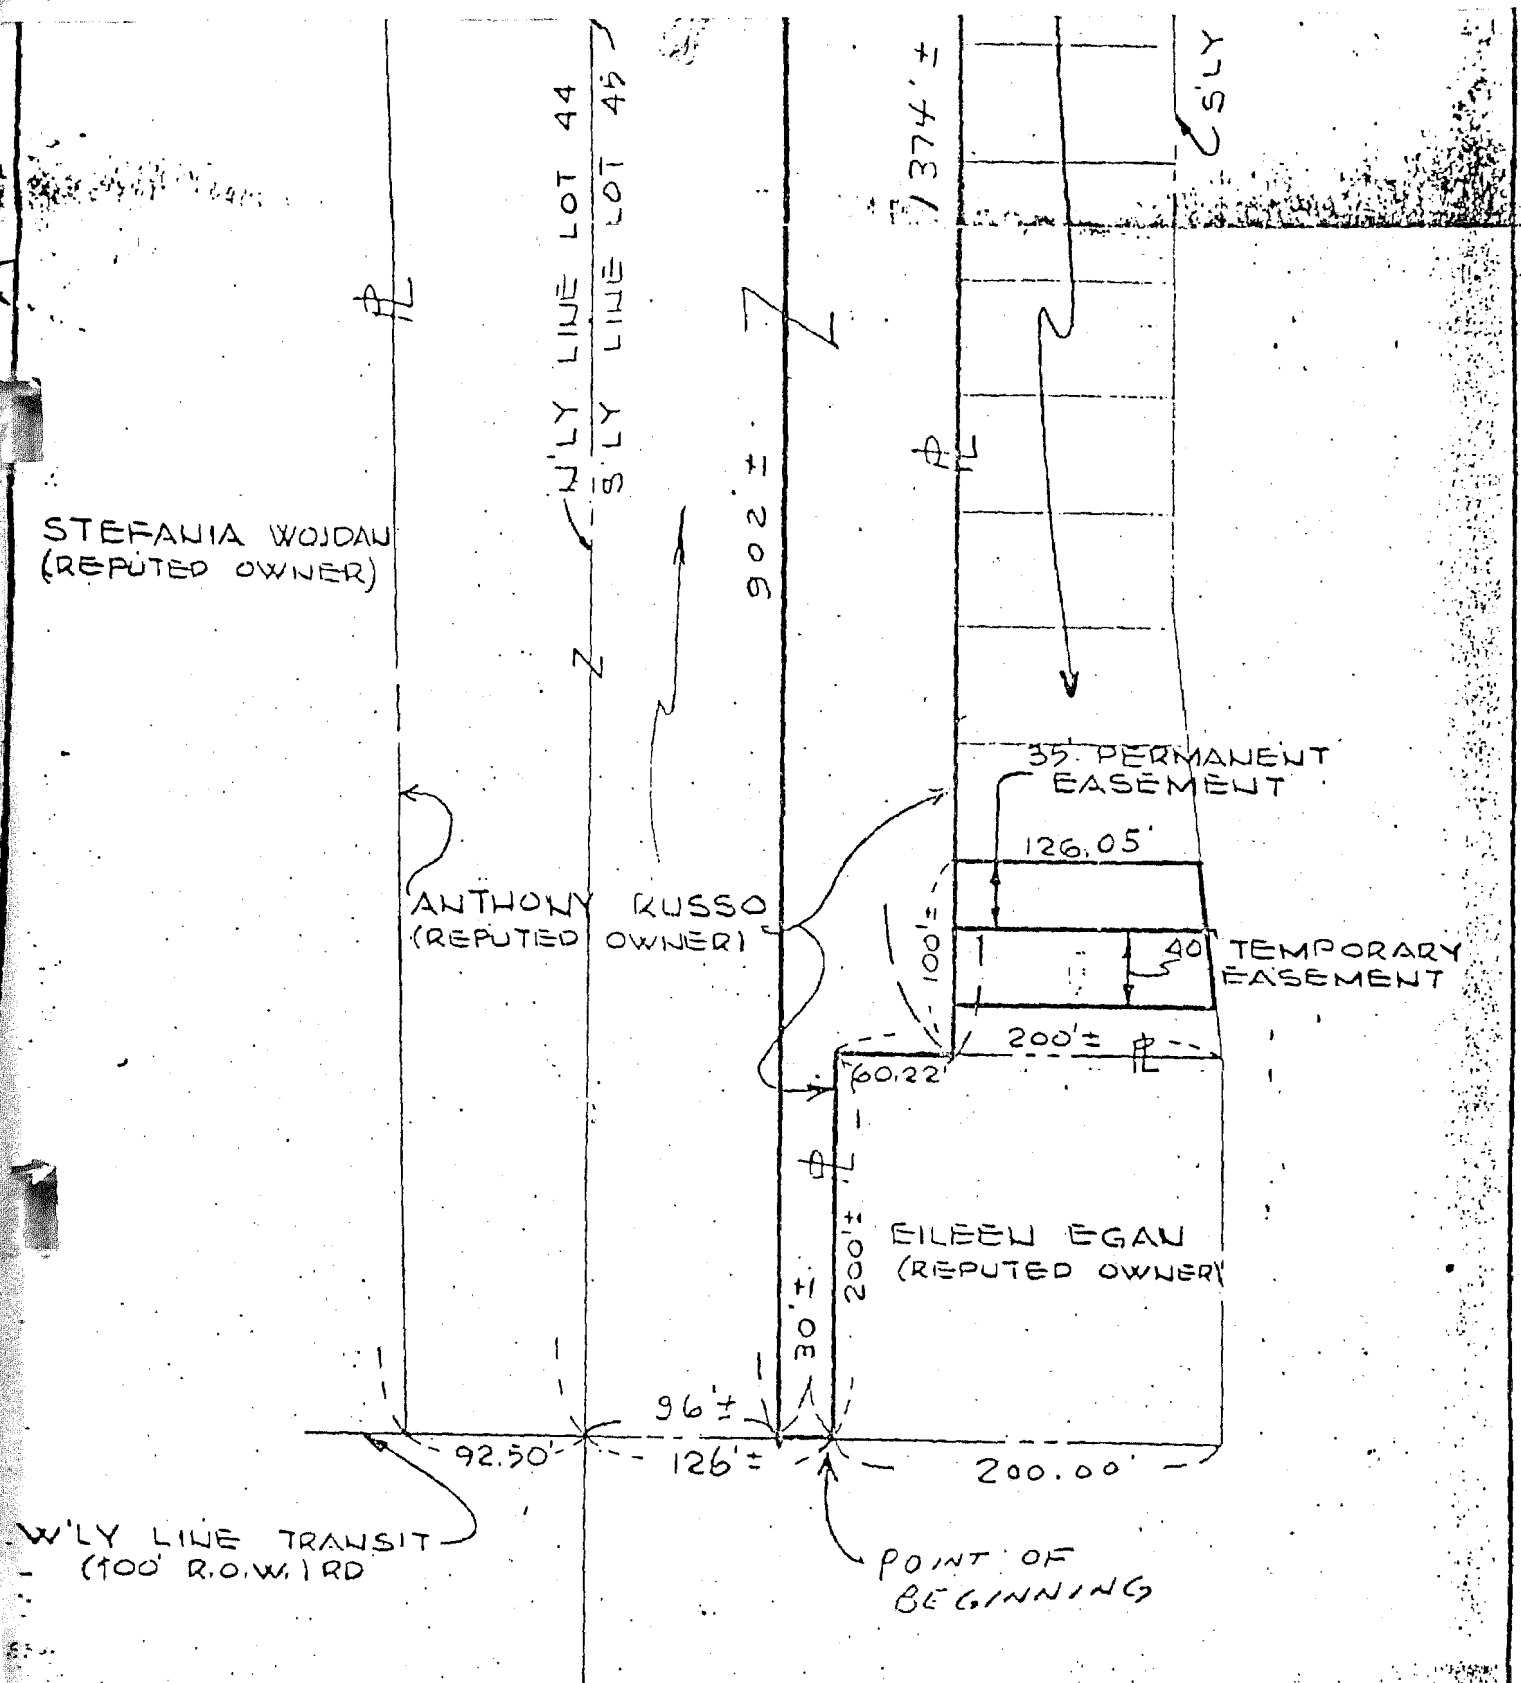 N'LY LINE LOT 44
S'LY LINE LOT 45
1374'±
S'LY
902'±
STEFANIA WOJDAN
(REPUTED OWNER)
35' PERMANENT
EASEMENT
126.05'
ANTHONY RUSSO
(REPUTED OWNER)
100'±
40' TEMPORARY
EASEMENT
200'±
60.22'
200'±
EILEEN EGAN
(REPUTED OWNER)
30'±
96'±
92.50'
126'±
200.00'
W'LY LINE TRANSIT
(100' R.O.W.) RD
POINT OF
BEGINNING